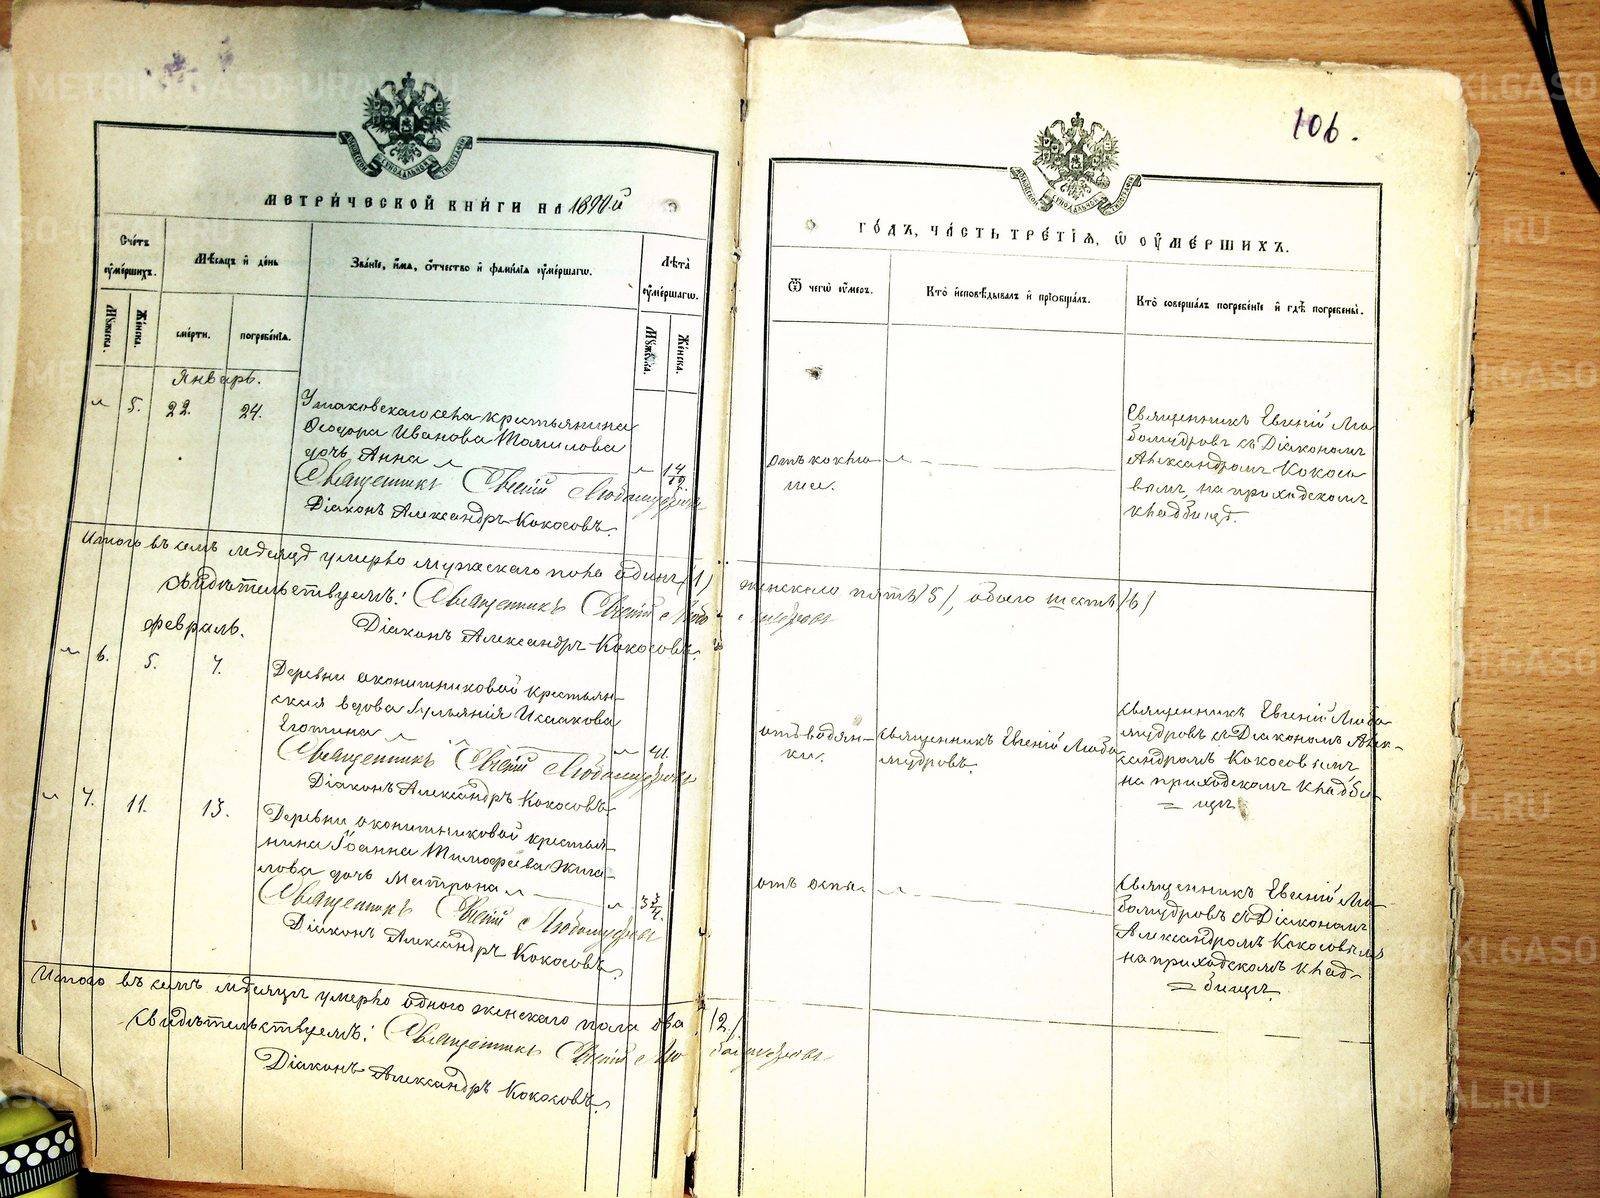 106.
МЕТРИЧЕСКОЙ КНИГИ НА 1890й
ГОДЪ, ЧАСТЬ ТРЕТІЯ, Ѿ ОУМЕРШИХЪ.
Счетъ оумершихъ.
Мѣсяцъ и день
Званіе, имя, отчество и фамилія оумершагѡ.
Лѣта оумершагѡ.
Ѿ чегѡ оумеръ.
Кто исповѣдывалъ и пріобщалъ.
Кто совершалъ погребеніе и гдѣ погребены.
Мужеска.
Женска.
смерти.
погребенія.
Мужеска.
Женска.
Январь.
5. 22. 24.
Ушаковскаго села крестьянина
Ѳеодора Иванова Томилова
дочь Анна
Священникъ Евгеній Любомудровъ
Діаконъ Александръ Кокосовъ.
отъ коклю
ша.
Священникъ Евгеній Лю
бомудровъ съ Діакономъ
Александромъ Кокосо
вымъ, на приходскомъ
кладбищѣ.
Итого въ семъ мѣсяцѣ умерло мужскаго пола одинъ (1) женскаго пять /5/, обоего шесть /6/
Свидѣтельствуемъ: Священникъ Евгеній Любомудровъ
Діаконъ Александръ Кокосовъ.
Февраль.
6. 5. 7.
Деревни Оконишниковой крестьян-
ская вдова Іульянія Исаакова
Еготина
41.
Священникъ Евгеній Любомудровъ
Діаконъ Александръ Кокосовъ.
отъ водян-
ки.
Священникъ Евгеній Любо
мудровъ.
Священникъ Евгеній Любо
мудровъ съ Діакономъ Алек-
сандромъ Кокосовымъ
на приходскомъ кладби-
щѣ.
7. 11. 13.
Деревни Оконишниковой крестья-
нина Іоанна Тимофеева Жи
лова дочь Матрона
3 3/4.
Священникъ Евгеній Любомудровъ
Діаконъ Александръ Кокосовъ.
отъ оспы
Священникъ Евгеній Лю
бомудровъ съ Діакономъ
Александромъ Кокосовымъ
на приходскомъ клад-
бищѣ.
Итого въ семъ мѣсяцѣ умерло одного женскаго пола два /2./
Свидѣтельствуемъ: Священникъ Евгеній Любомудровъ
Діаконъ Александръ Кокосовъ.
METRIKI.GASO-URAL.RU